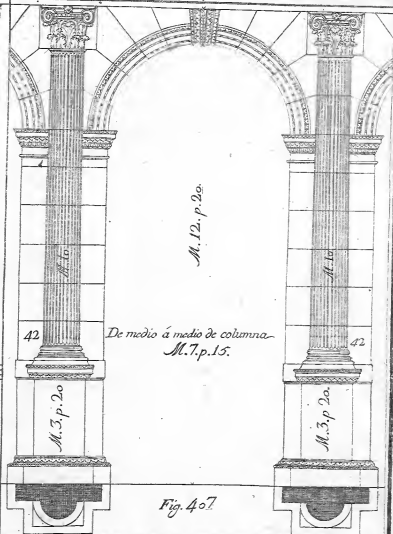 M.12.p.20.
M.10.
M.10
42
De medio á medio de columna
42
M.7.p.15.
M.3.p.20
M.3.p.20.
Fig. 407